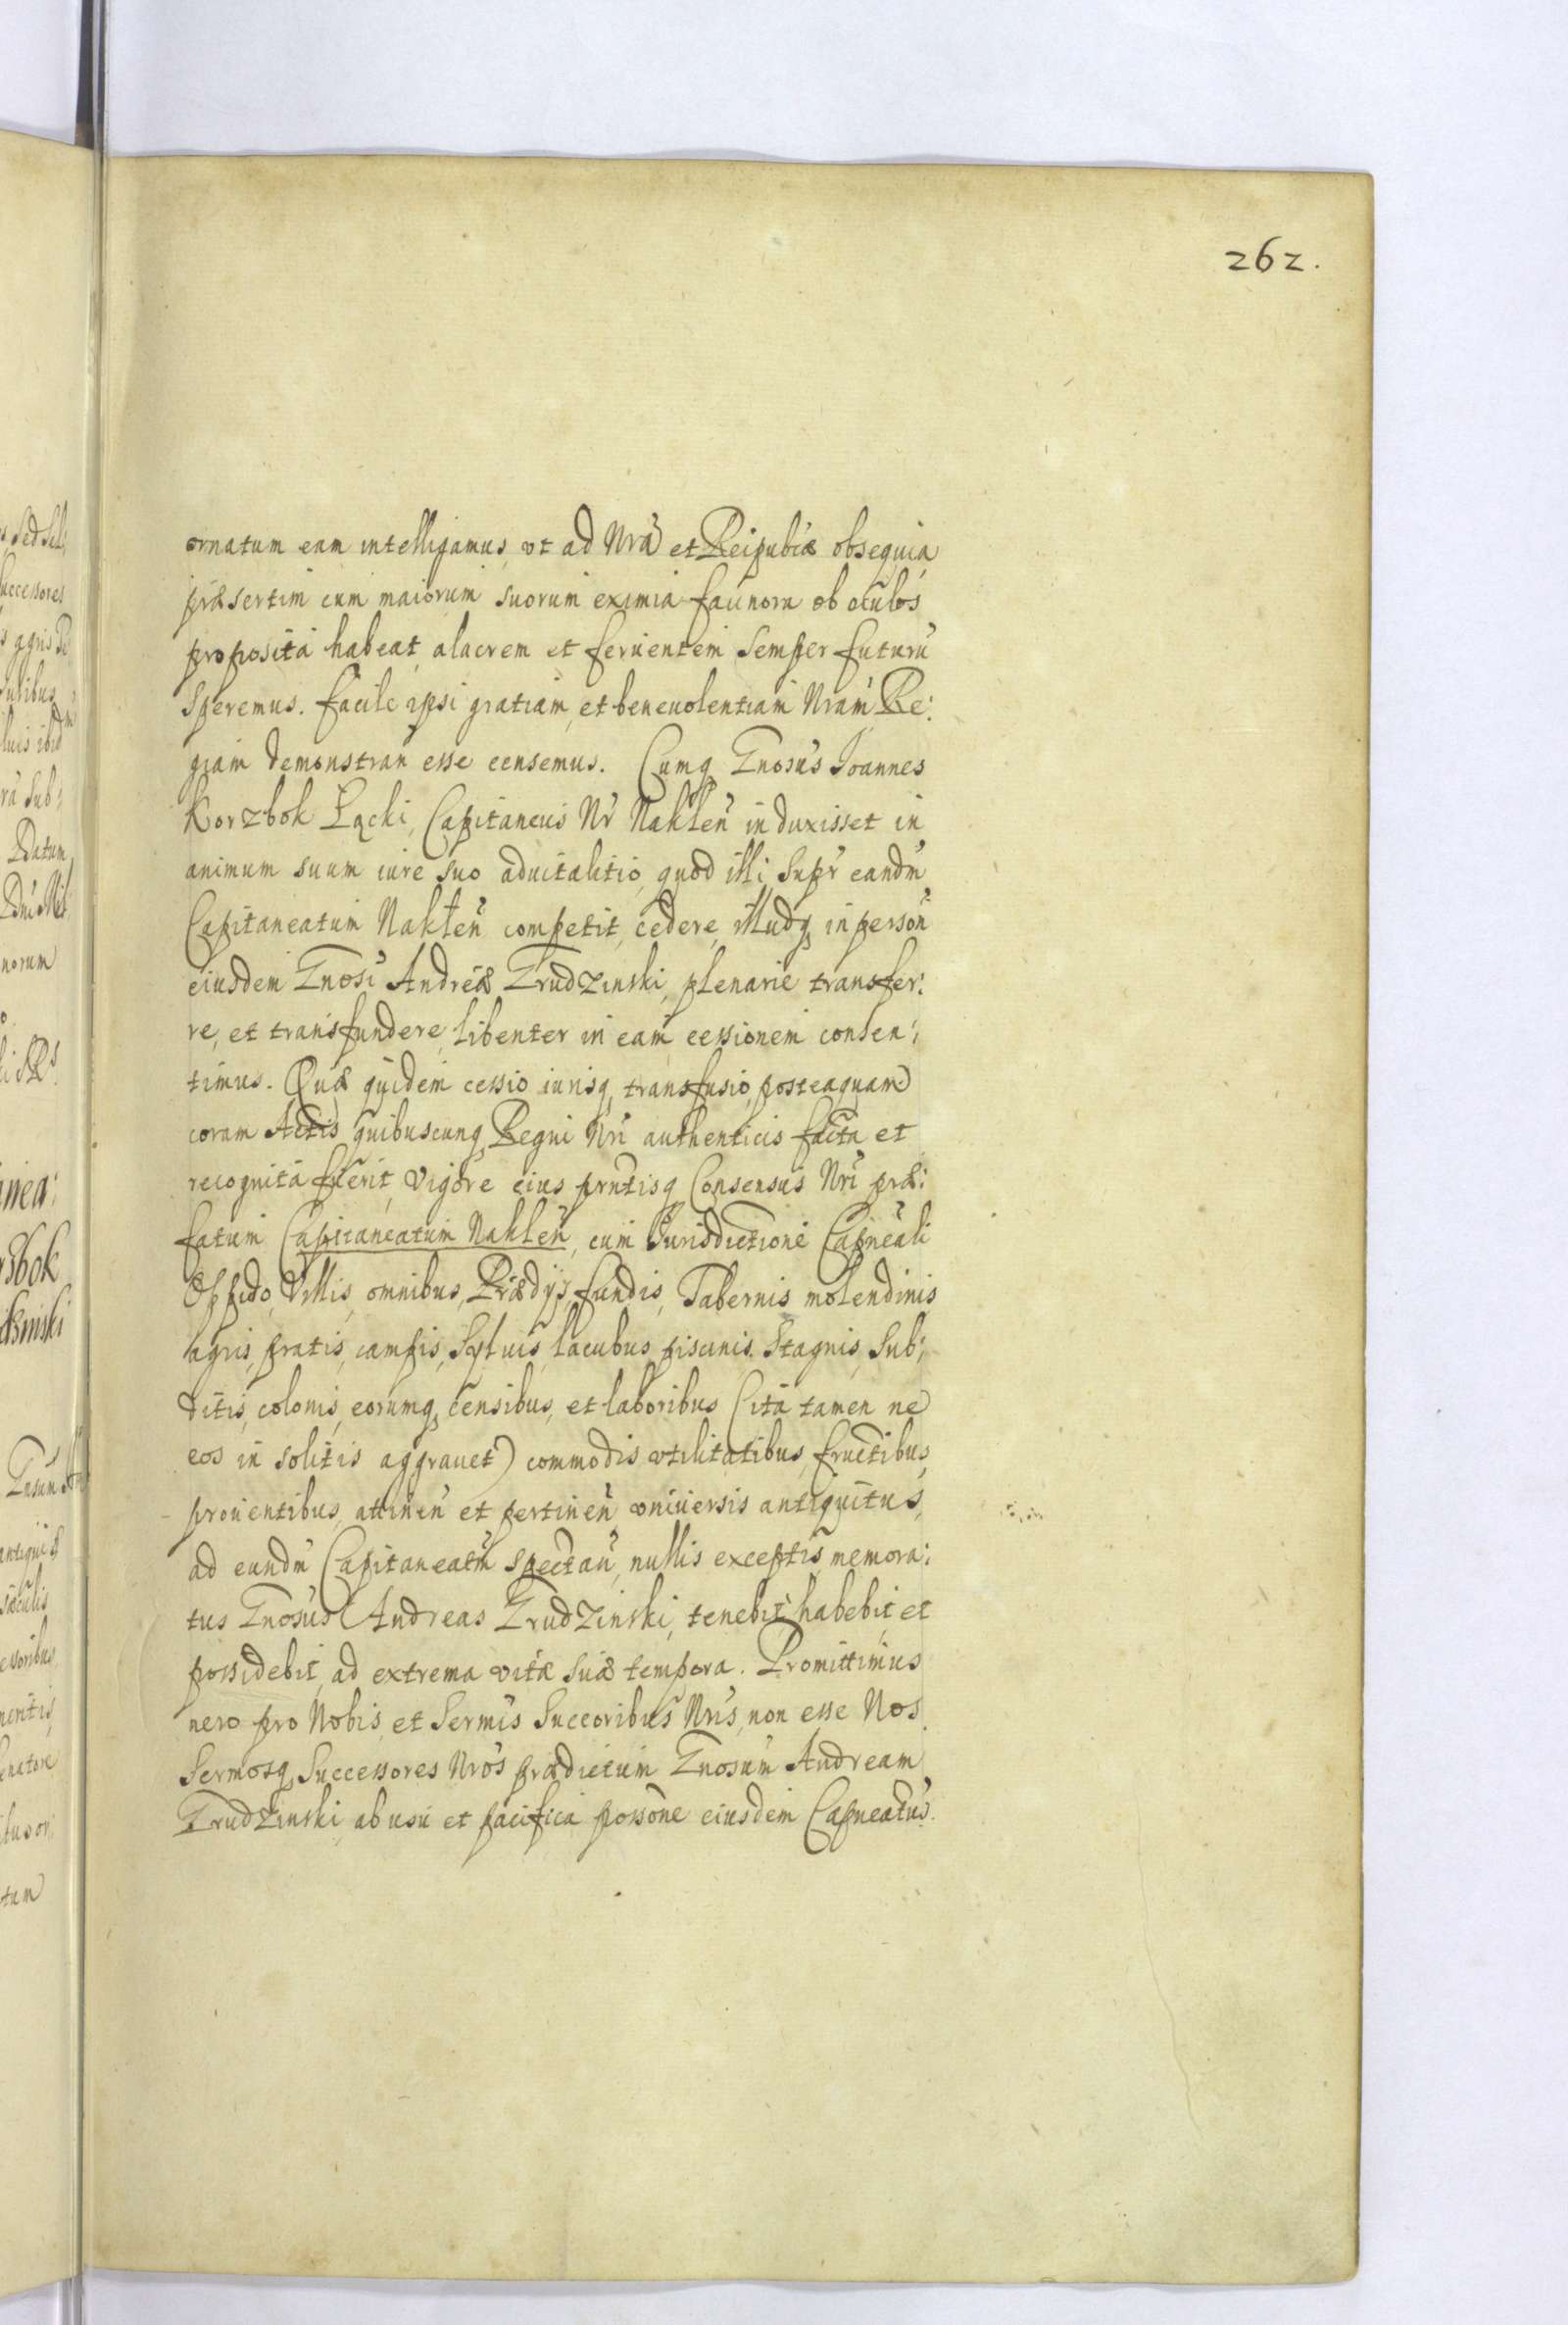 262.
ornatum eam intelligamus, vt ad Nrã et Reipubcæ obsequia,
præsertim cum maiorum suorum eximia facinora ob oculos
proposita habeat, alacrem et feruentem semper futurũ
Speremus. facile ipsi gratiam, et beneuolentiam Nram Re:
giam demonstran esse censemus. Cumq Gnosus Joannes
Korzbok Łącki, Capitaneus Nr Naklen induxisset in
animum suum iure suo aduitalitio, quod illi supr eandm
Capitaneatum Naklen competit, cedere, illudq in person
eiusdem Gnosi Andreæ Trudzinski, plenarie transfer:
re, et transfundere, libenter in eam cessionem consen:
timus. Quæ quidem cessio iurisq transfusio, posteaquam
coram Actis quibuscunq Regni Nri authenticis facta et
recognita fuerit, vigore eius prntisq Consensus Nri præ:
fatum Capitaneatum Naklen, cum Jurisdictione Capneali
Oppido, Villis, omnibus, Prædijs, fundis, Tabernis molendinis
agris, pratis, campis, Syluis, lacubus, piscinis. Stagnis, Sub:
ditis, colonis, eorumq censibus, et laboribus (ita tamen ne
eos in solitis aggrauet) commodis vtilitatibus, fructibus,
prouentibus, attinen et pertinen vniuersis antiquitus,
ad eundm Capitaneatm spectan, nullis exceptis, memora:
tus Gnosus Andreas Trudzinski, tenebit, habebit, et
possidebit, ad extrema vitæ suæ tempora. Promittimus
nero pro Nobis, et Sermis Succoribus Nris, non esse Nos
Sermosq Successores Nros prædictum Gnosum Andream
Trudzinski, ab usu et pacifica possone eiusdem Capneatus.